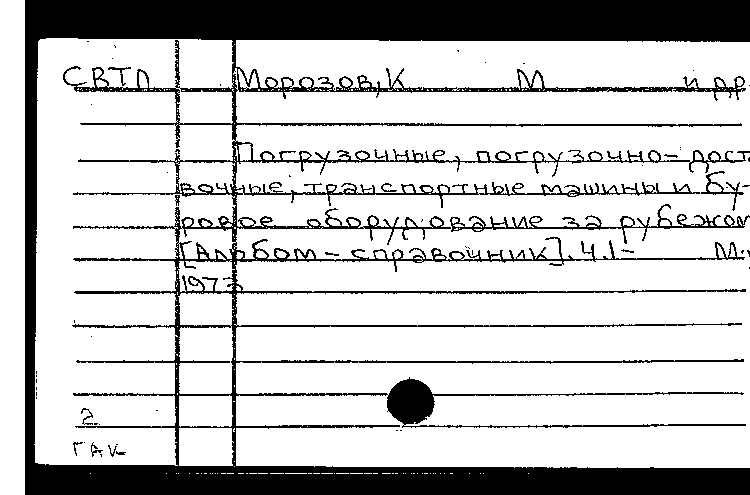 СВТП Морозов, К М и др.
Погрузочные, погрузочно-дост
вочные, транспортные машины и бу-
ровое оборудование за рубежом
[Альбом-справочник]. Ч.1- М.,
1973
2
ГАК